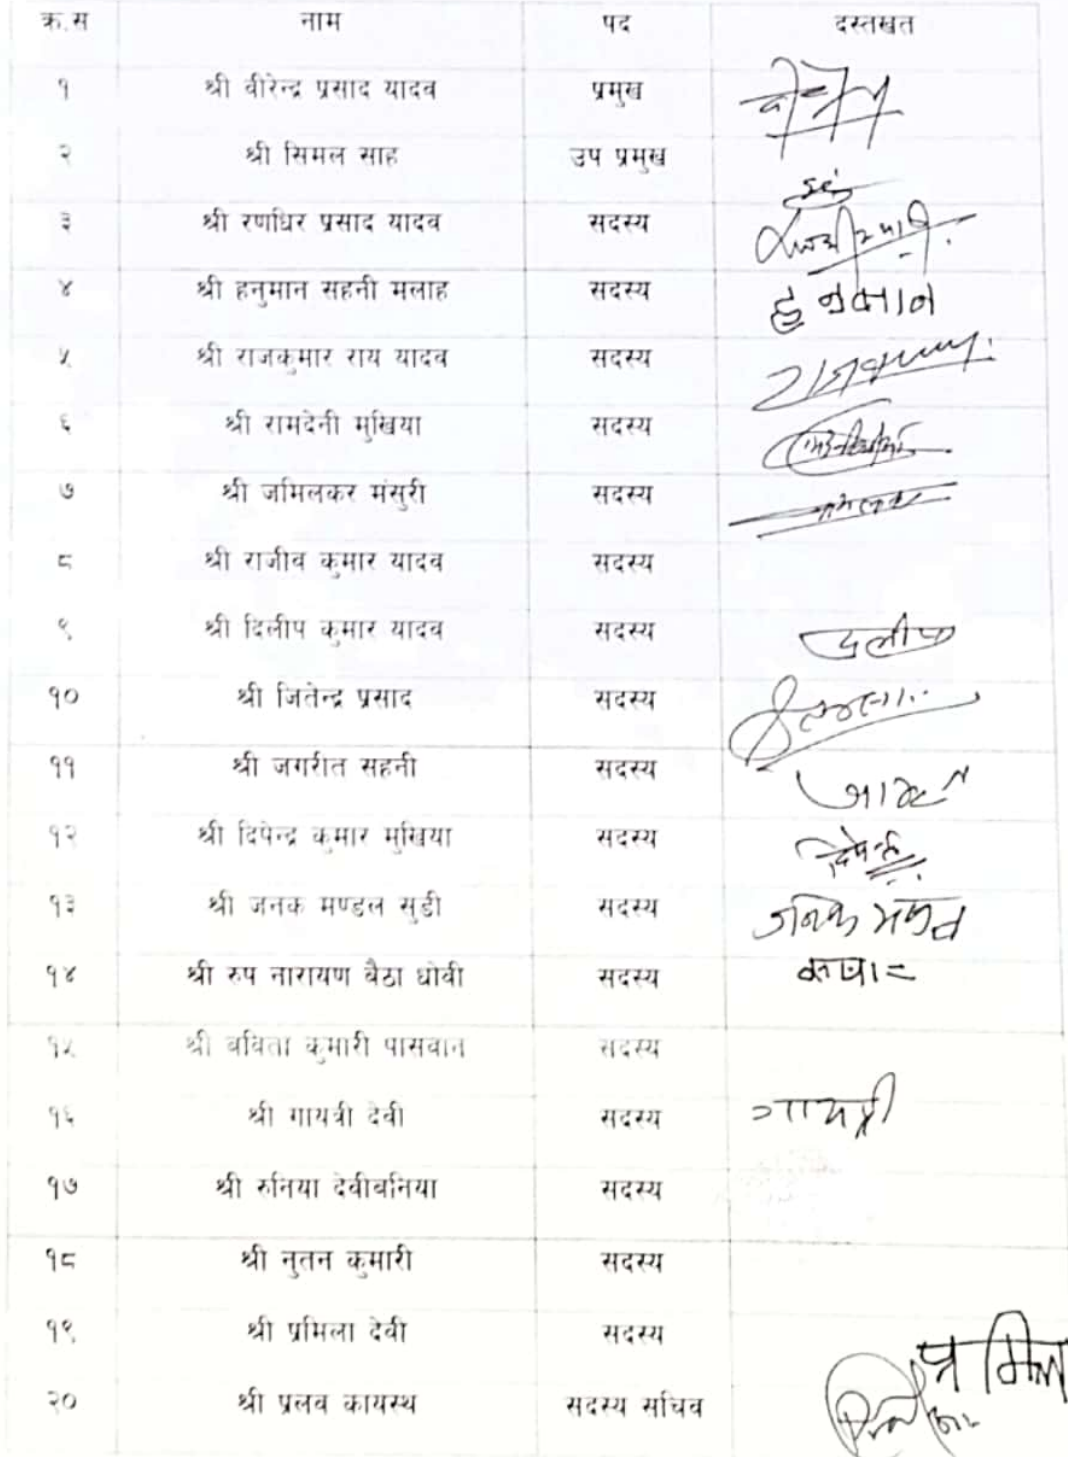 क्र.स नाम पद दस्तखत
१ श्री वीरेन्द्र प्रसाद यादव प्रमुख
२ श्री सिमल साह उप प्रमुख
३ श्री रणधिर प्रसाद यादव सदस्य
४ श्री हनुमान सहनी मलाह सदस्य हनुमान
५ श्री राजकुमार राय यादव सदस्य
६ श्री रामदेनी मुखिया सदस्य
७ श्री जमिलकर मंसुरी सदस्य
८ श्री राजीव कुमार यादव सदस्य
९ श्री दिलीप कुमार यादव सदस्य दलीप
१० श्री जितेन्द्र प्रसाद सदस्य
११ श्री जगरीत सहनी सदस्य
१२ श्री दिपेन्द्र कुमार मुखिया सदस्य
१३ श्री जनक मण्डल सुडी सदस्य जनक मण्डल
१४ श्री रुप नारायण बैठा धोवी सदस्य
१५ श्री बविता कुमारी पासवान सदस्य
१६ श्री गायत्री देवी सदस्य गायत्री
१७ श्री रुनिया देवीबनिया सदस्य
१८ श्री नुतन कुमारी सदस्य
१९ श्री प्रमिला देवी सदस्य प्रमिला
२० श्री प्रलव कायस्थ सदस्य सचिव